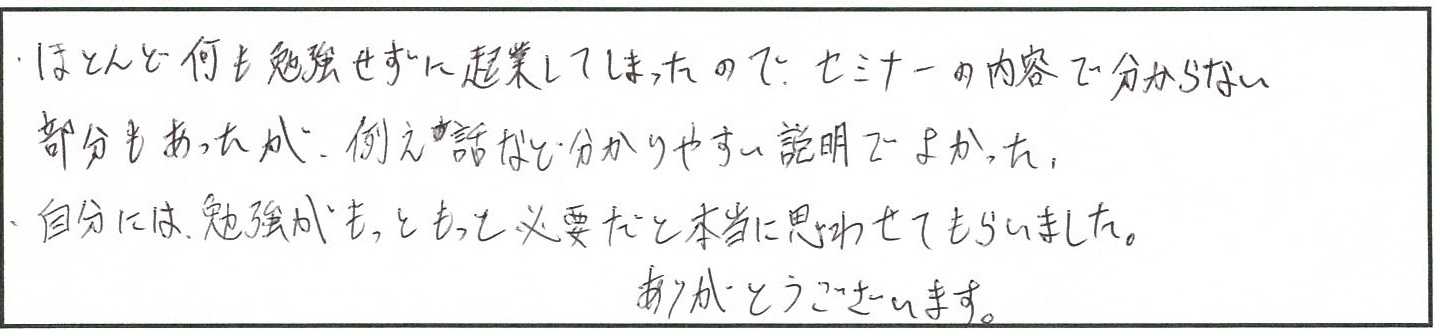 ・ほとんど何も勉強せずに起業してしまったので、セミナーの内容で分からない
部分もあったが、例え話など分かりやすい説明でよかった。
・自分には、勉強がもっともっと必要だと本当に思わせてもらいました。
ありがとうございます。